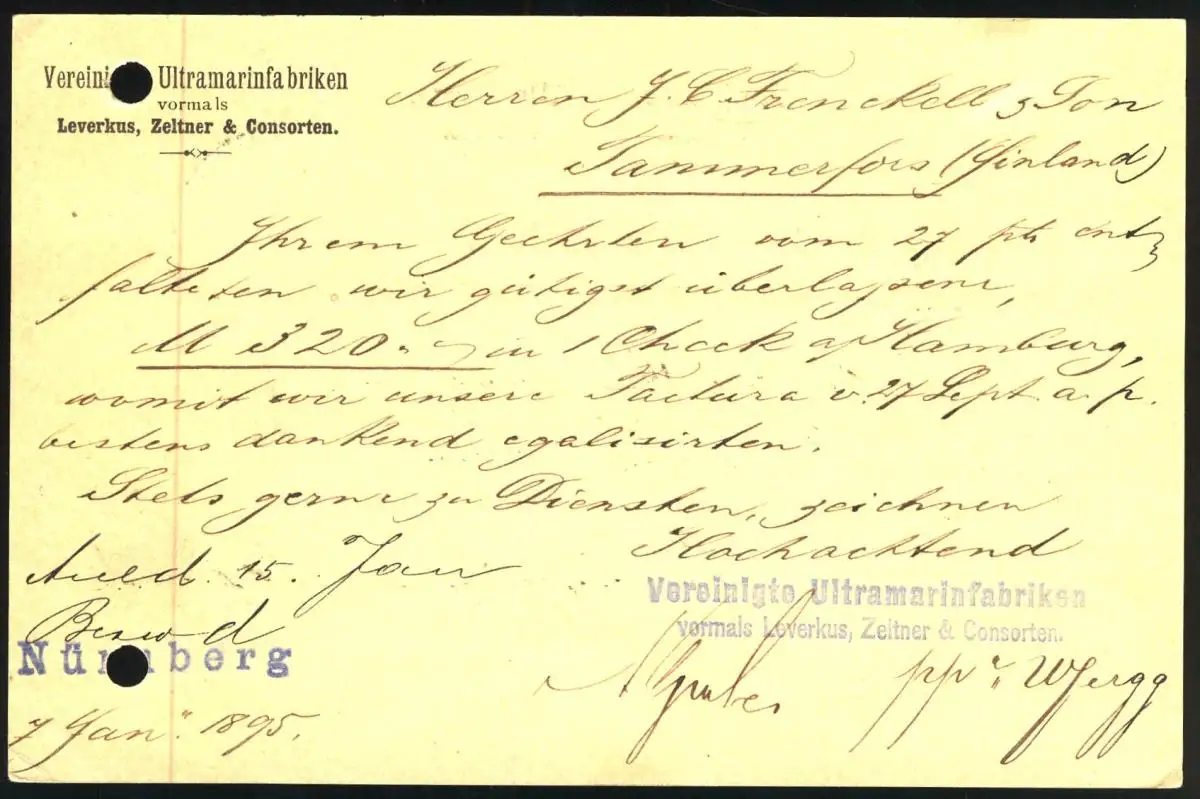 Vereini Ultramarinfabriken
vormals
Leverkus, Zeltner & Consorten.
Herren J. C. Frenckell & Son
Tammerfors (Finland)
Ihrem Geehrten vom 27 ent
falteten wir gütigst überlassene,
M 320. in 1 Check a/Hamburg,
womit wir unsere Factura v. 27 Sept. a. p.
bestens dankend egalisirten.
Stets gerne zu Diensten, zeichnen
Hochachtend
15. Jan
Vereinigte Ultramarinfabriken
vormals Leverkus, Zeltner & Consorten.
Nürnberg
7 Jan. 1895.
pp